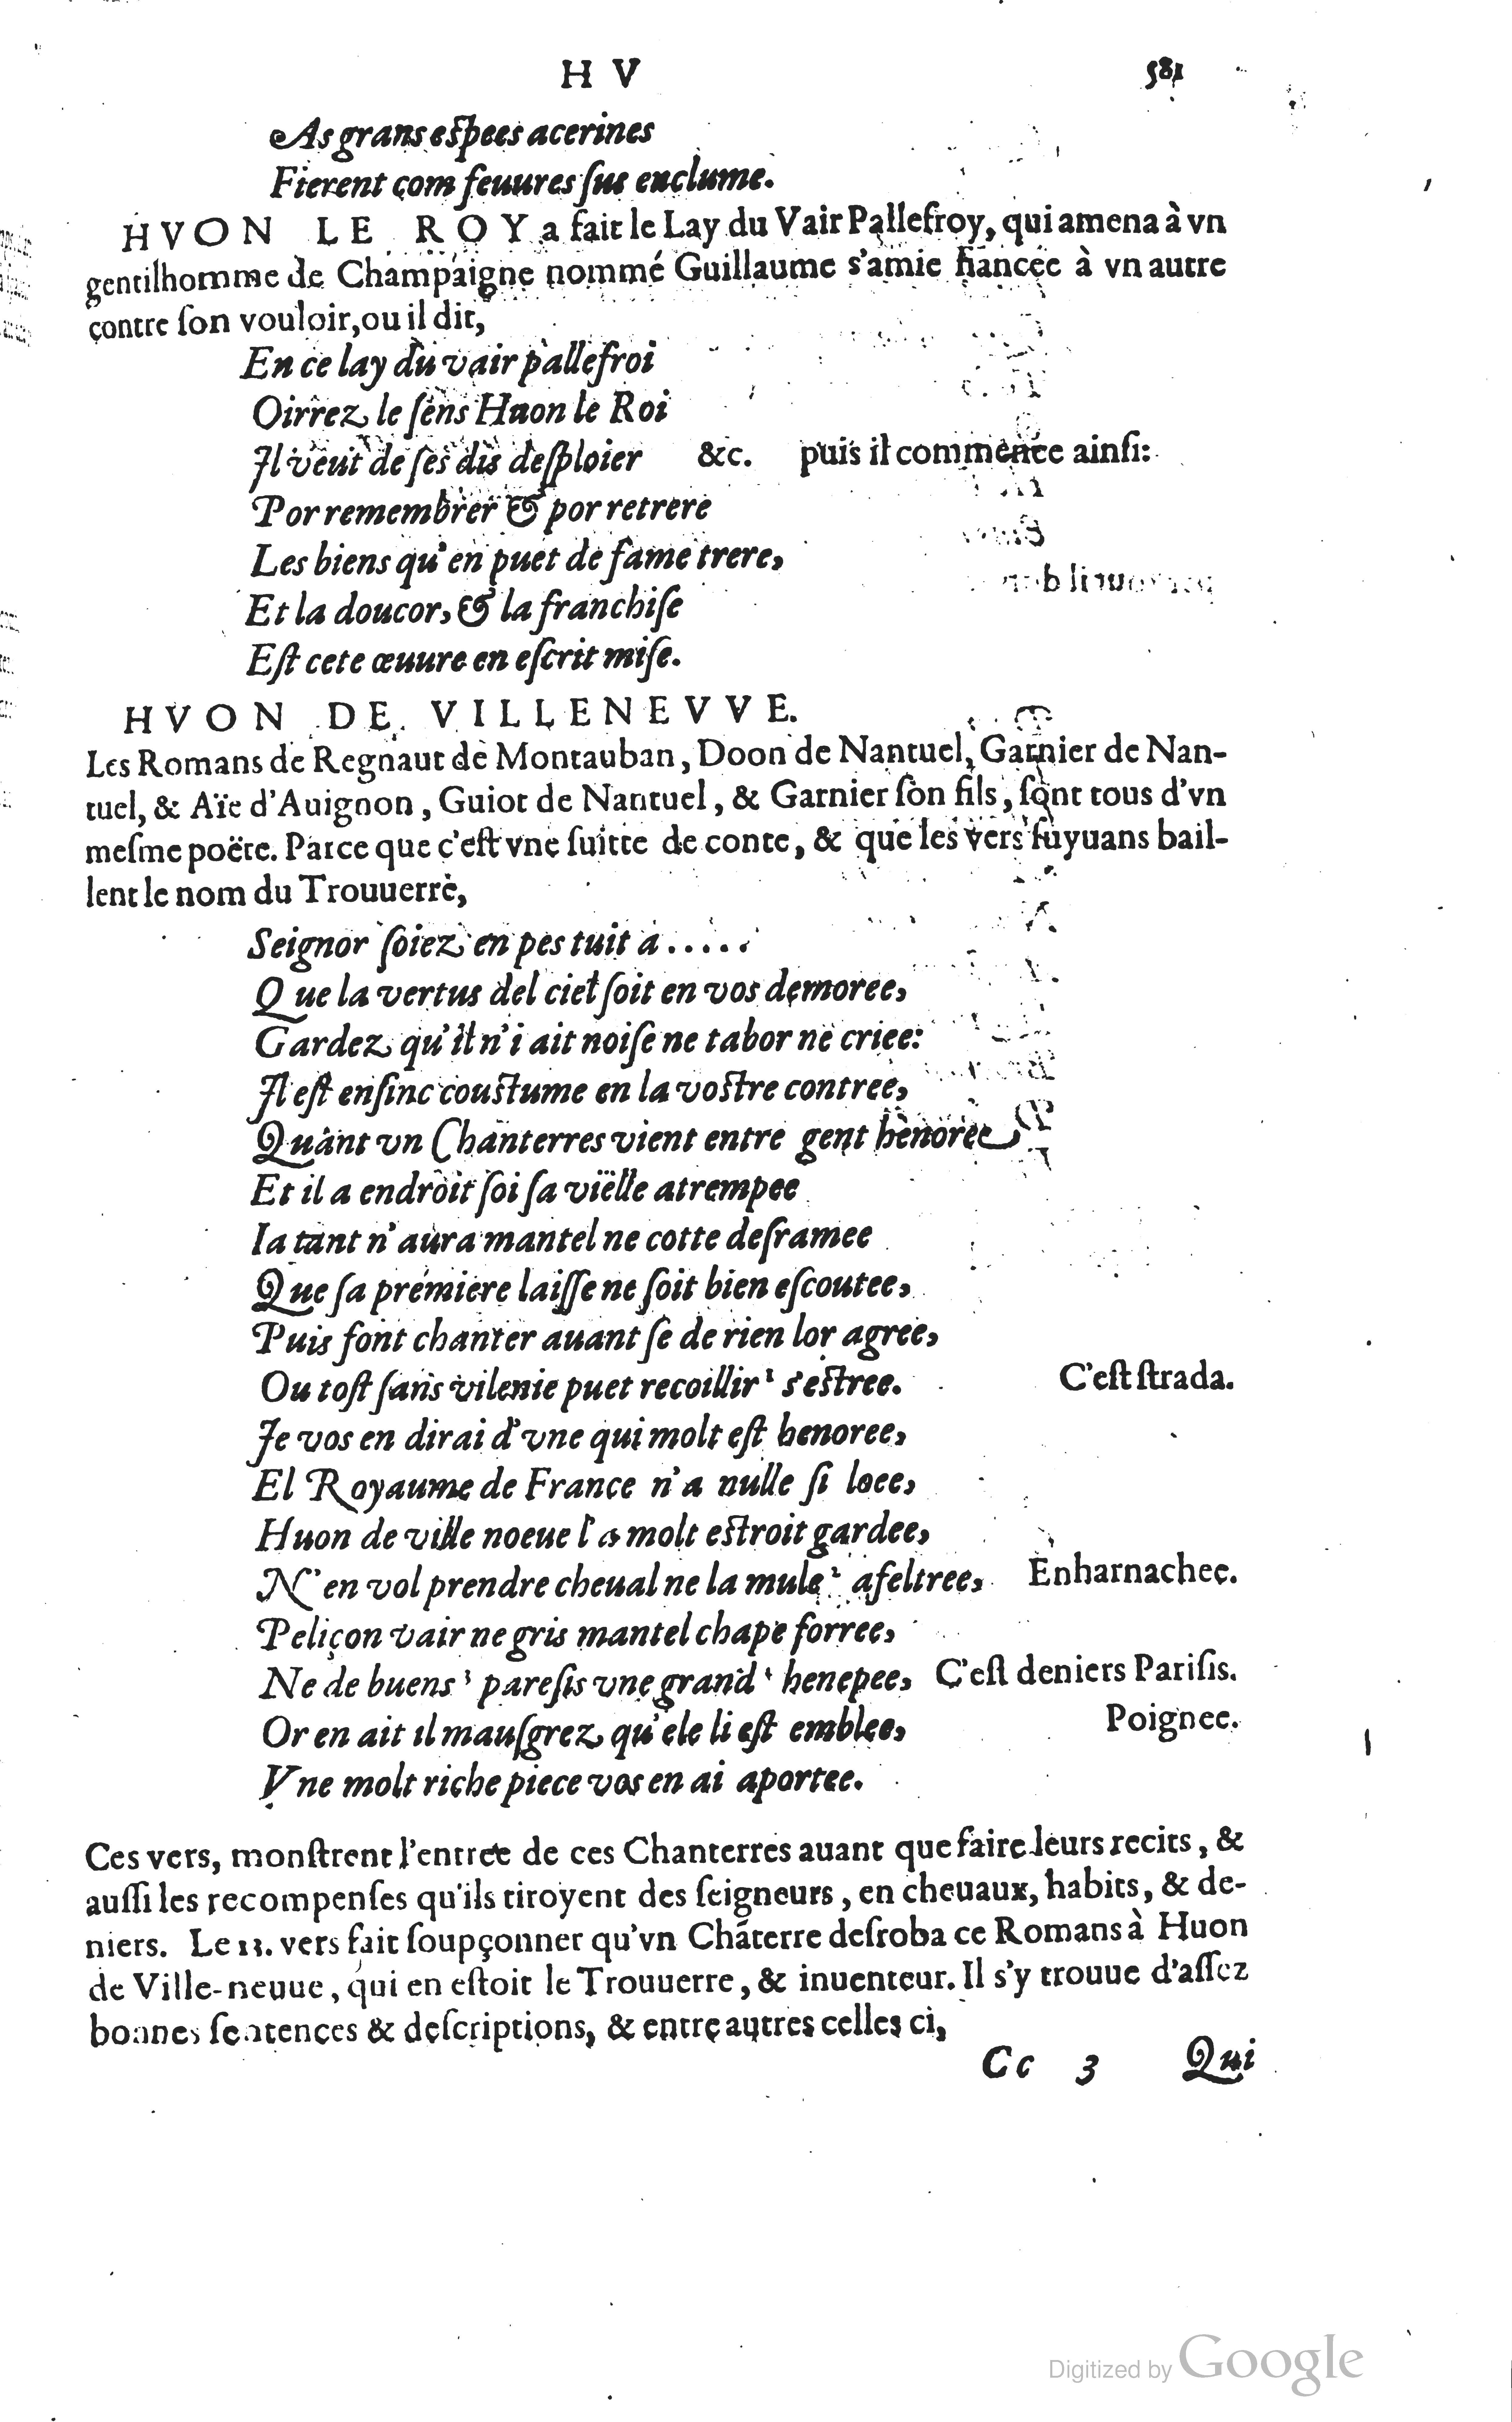 H V 581
As grans espees acerines
Fierent com feuures ſus enclume.
HVON LE ROY a fait le Lay du Vair Pallefroy, qui amena à vn
gentilhomme de Champaigne nommé Guillaume s'amie fiancée à vn autre
contre ſon vouloir, ou il dit,
En ce lay du vair pallefroi
Oirrez le ſens Huon le Roi
Il veut de ſes dis deſploier &c. puis il commence ainſi:
Por remembrer & por retrere
Les biens qu'en puet de fame trere,
Et la doucor, & la franchiſe
Eſt cete œuure en eſcrit miſe.
HVON DE VILLENEVVE.
Les Romans de Regnaut de Montauban, Doon de Nantuel, Garnier de Nan-
tuel, & Aïe d'Auignon, Guiot de Nantuel, & Garnier ſon fils, ſont tous d'vn
meſme poëte. Parce que c'eſt vne ſuitte de conte, & que les vers ſuyuans bail-
lent le nom du Trouuerre,
Seignor ſoiez en pes tuit a.....
Que la vertus del ciel ſoit en vos demoree,
Gardez qu'il n'i ait noiſe ne tabor ne criee:
Il eſt enſinc couſtume en la voſtre contree,
Quant vn Chanterres vient entre gent henoree
Et il a endroit ſoi ſa viëlle atrempee
Ia tant n'aura mantel ne cotte deſramee
Que ſa premiere laiſſe ne ſoit bien eſcoutee,
Puis font chanter auant ſe de rien lor agree,
Ou toſt ſans vilenie puet recoillir ¹ s'eſtree. C'eſt ſtrada.
Je vos en dirai d'vne qui molt eſt henoree,
El Royaume de France n'a nulle ſi loee,
Huon de ville noeue l'a molt eſtroit gardee,
N'en vol prendre cheual ne la mule ² afeltree, Enharnachee.
Peliçon vair ne gris mantel chape forree,
Ne de buens ³ pareſis vne grand ⁴ henepee, C'eſt deniers Pariſis.
Or en ait il mauſgrez qu'ele li eſt emblee, Poignee.
Vne molt riche piece vos en ai aportee.
Ces vers, monſtrent l'entree de ces Chanterres auant que faire leurs recits, &
auſſi les recompenſes qu'ils tiroyent des ſeigneurs, en cheuaux, habits, & de-
niers. Le 13. vers fait ſoupçonner qu'vn Chāterre deſroba ce Romans à Huon
de Ville-neuue, qui en eſtoit le Trouuerre, & inuenteur. Il s'y trouue d'aſſez
bonnes ſentences & deſcriptions, & entre autres celles ci,
Cc 3 Qui
Digitized by Google